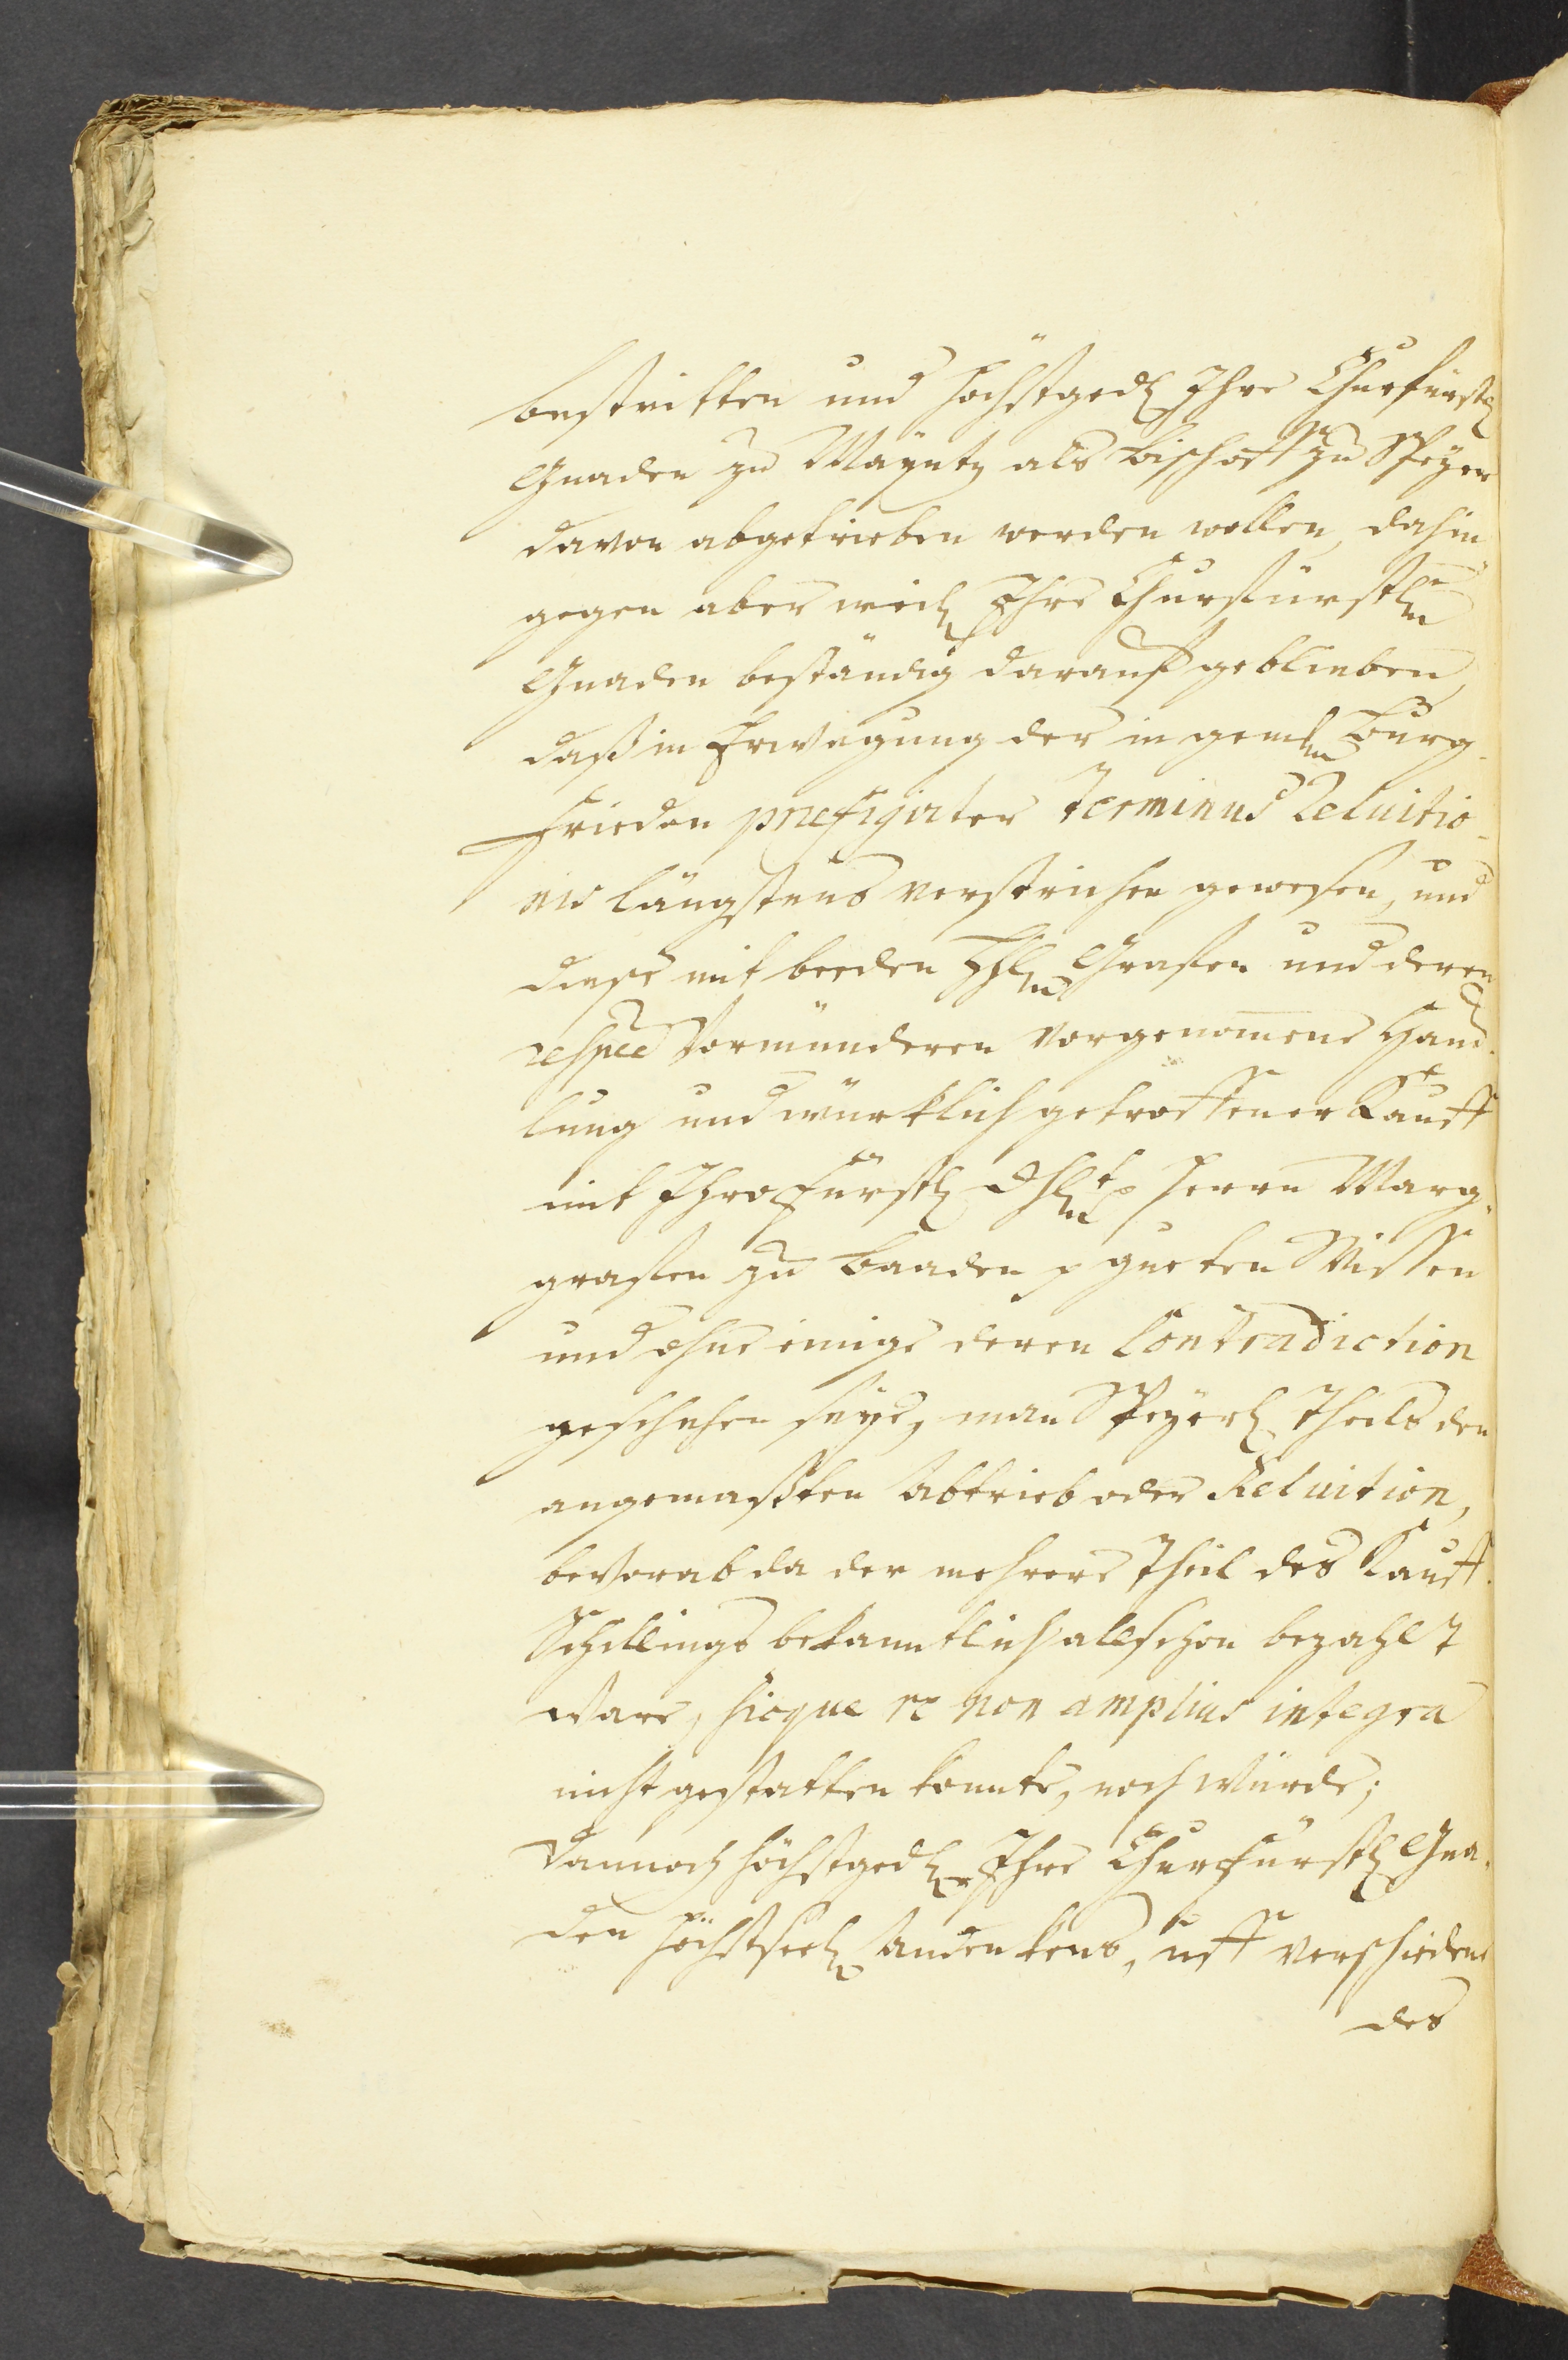 bestritten und höchstged. Ihre Churfürstl.
Gnaden zu Mayntz als Bischoff zu Speyer
davon abgetrieben werden wollen, dahin
gegen aber Ihre Churfürstln
Gnaden beständig darauf geblieben,
daß in Erwegung der in gemln Burg-
frieden præfigirter terminus reluitio-
nis längstens verstrichen gewesen, und
diese mit beeden Grafen und deren
respee Vormünderen vorgenomene Hand-
lung und würklich getroffener Kauff
mit Ihro Fürstl. Herrn Marg-
grafen zu Baaden p gueten Wissen
und ohne einige deren Contradiction
geschehen seye, man Speyerl. Theils den
angemaßten Abtrieb oder Reluition,
bevorab da der mehrere Theil des Kauff-
Schillings bekanntlich allschon bezahlt
ware, sicque re non amplius integra
nicht gestatten konnte, noch würde;
dannoch höchstged. Ihre Churfürstl. Gna-
den höchstseel. Andenkens, uff verschiedene
des